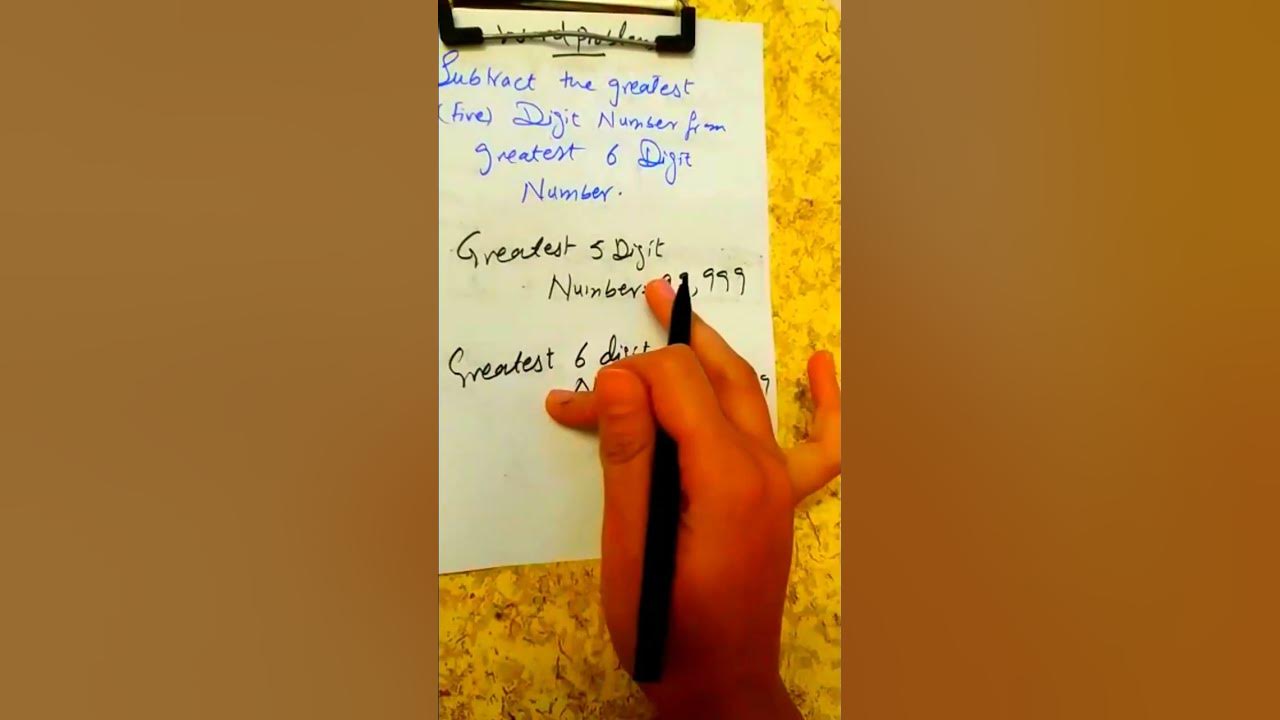 Word Problem
Subtract the greatest
(Five) Digit Number from
greatest 6 Digit
Number.
Greatest 5 Digit
Number: 99,999
Greatest 6 digit